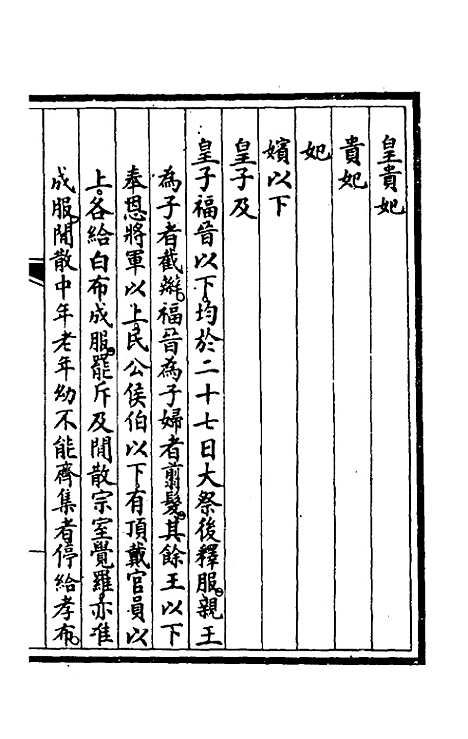 皇貴妃
貴妃
妃
嬪以下
皇子及
皇子福晉以下均於二十七日大祭後釋服。親王
為子者截辮。福晉為子婦者翦髮。其餘王以下
奉恩將軍以上。民公侯伯以下。有頂戴官員以
上。各給白布成服。罷斥及閒散宗室覺羅。亦准
成服。閒散中年老年幼不能齊集者停給孝布。